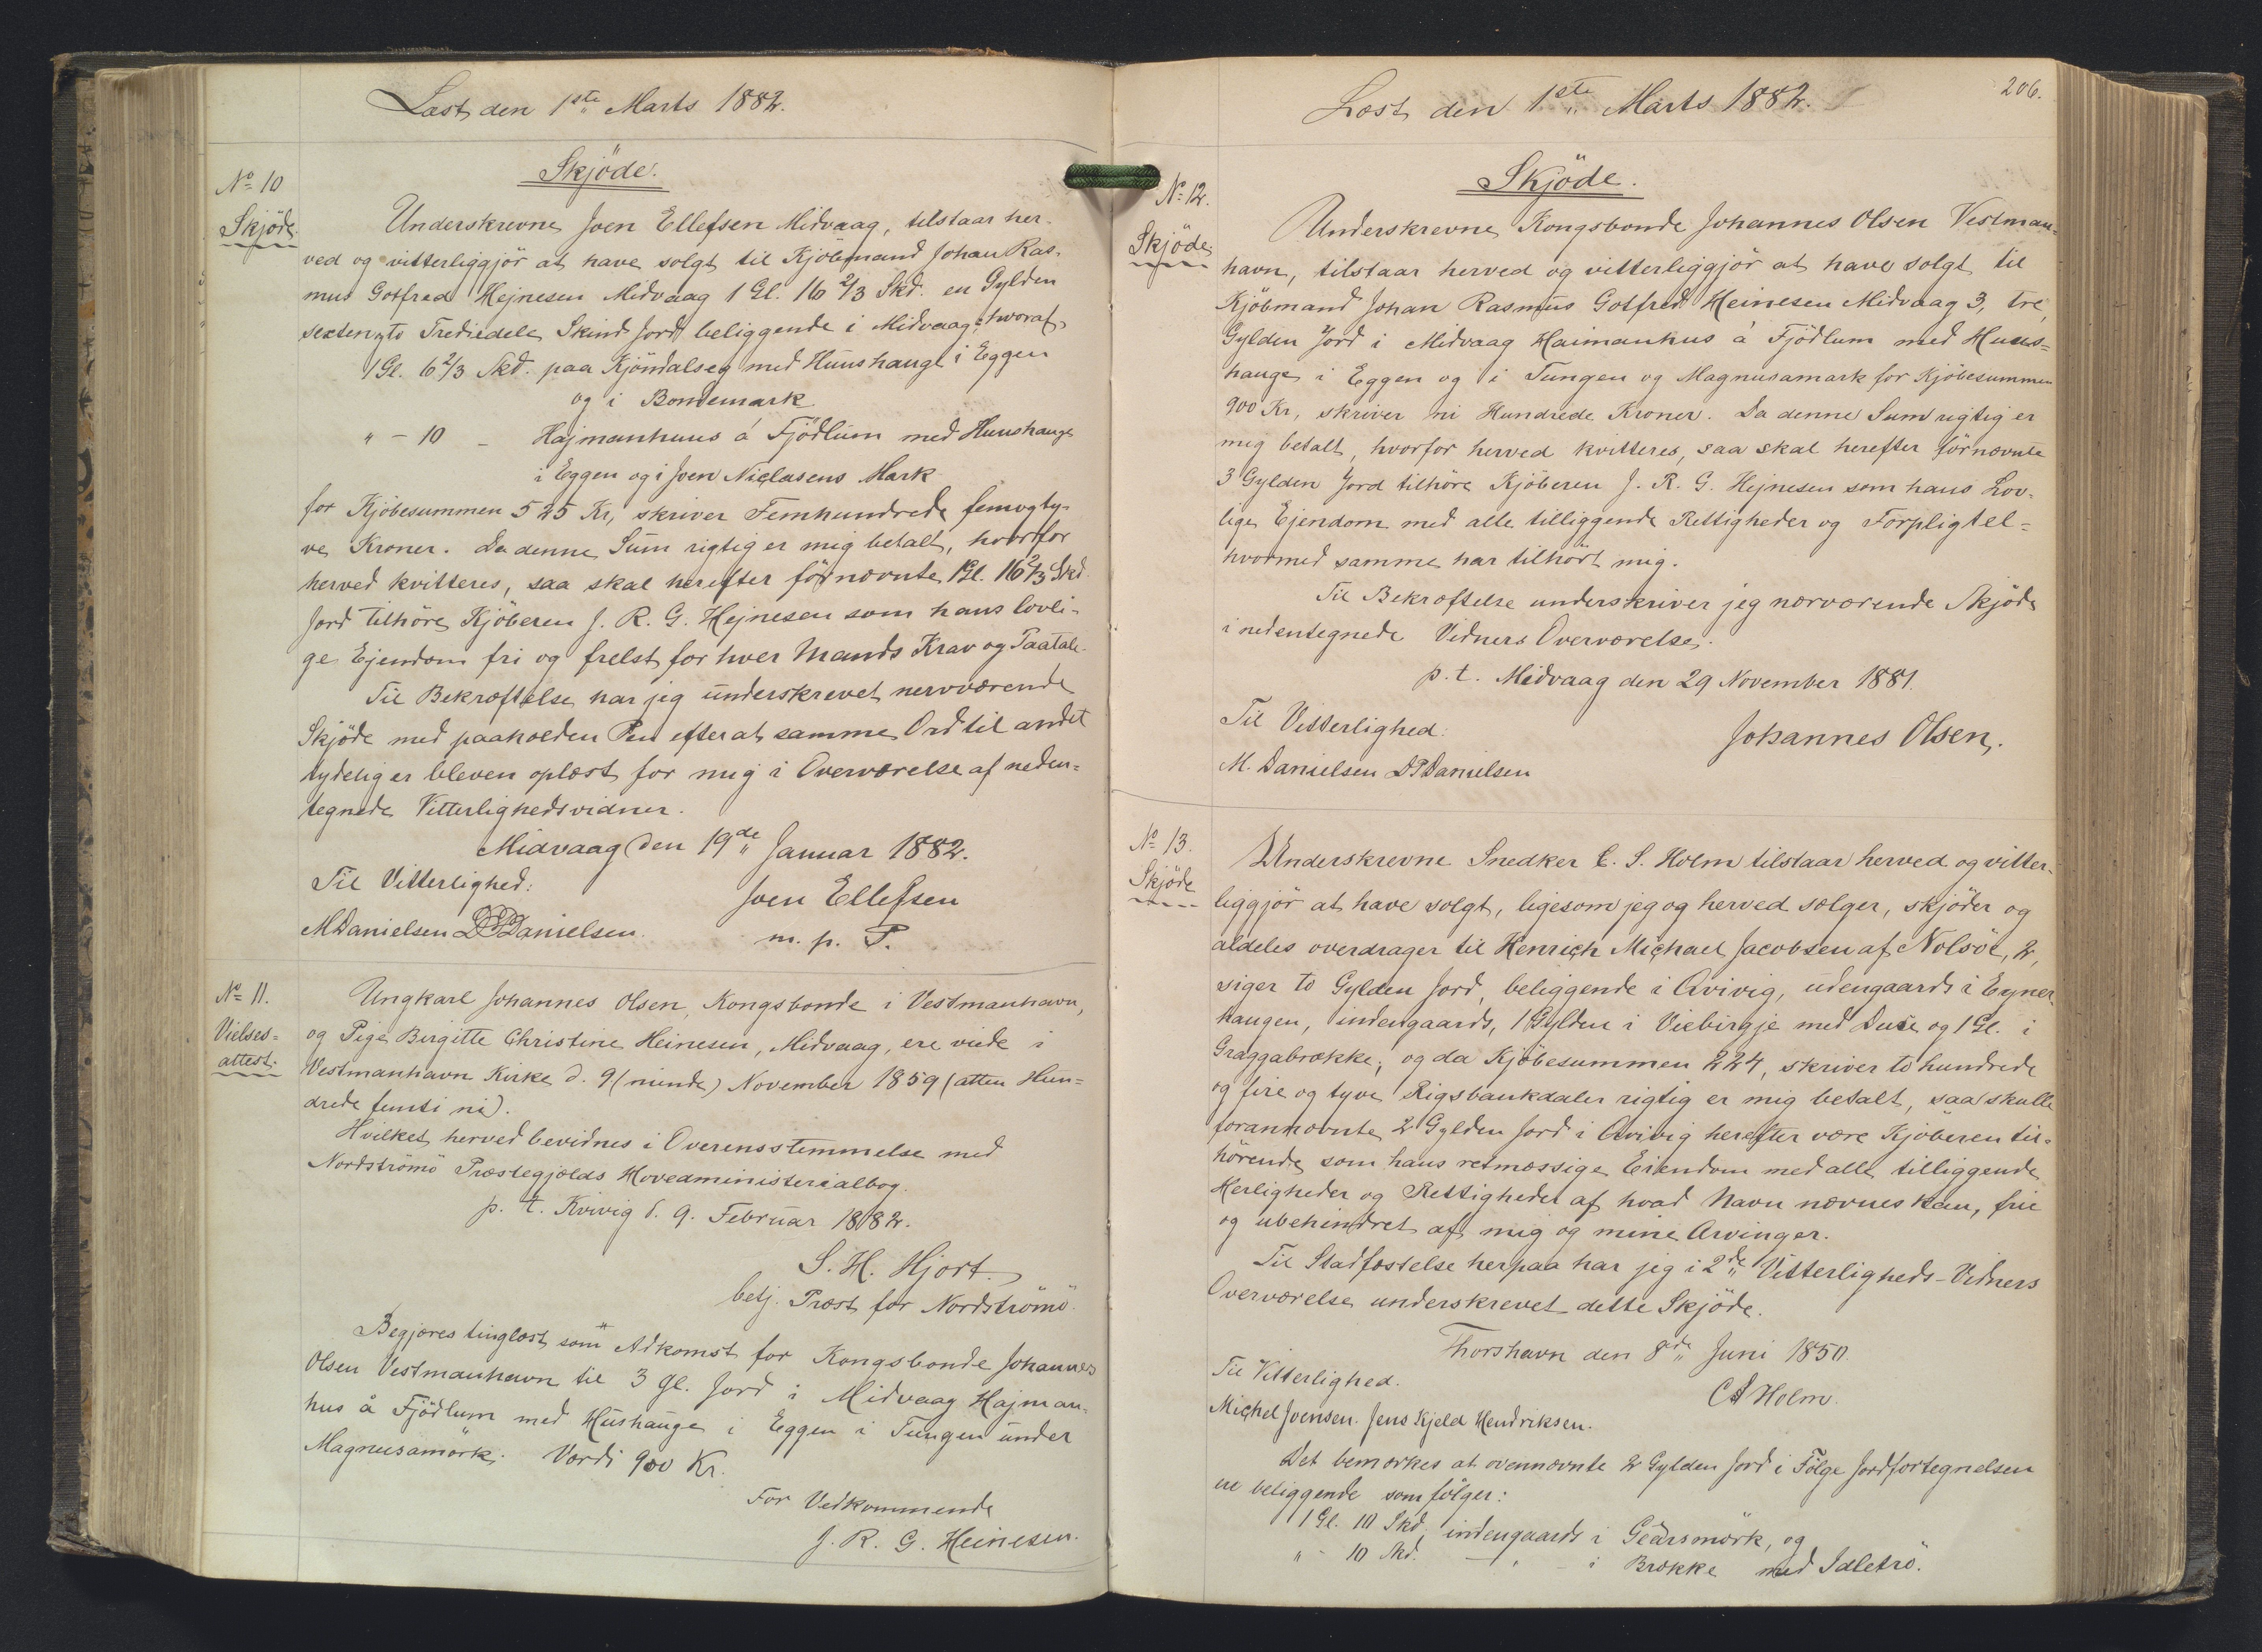 Læst den 1ste Marts 1882.
No 10
Skjöde.
Skjöde.
Underskrevne Joen Ellefsen Midvaag, tilstaar her-
ved og vitterliggjör at have solgt til Kjöbmand Johan Ras-
mus Gotfred Hejnesen Midvaag 1 Gl. 16 2/3 Skd. en Gylden
sexten 2/3 Trediedele Skind Jord beliggende i Midvaag, hvoraf
1 Gl. 6 2/3 Skd. paa Kjöindalseg med Huushauge i Eggen
og i Bondemark
" - 10 - Hajmanhuus á Fjödlum med Huushauge
i Eggen og i Joen Niclasens Mark
for Kjöbesummen 525 Kr, skriver Femhundrede femogty-
ve Kroner. Da denne Sum rigtig er mig betalt, hvorfor
herved kvitteres, saa skal herefter förnævnte 1 Gl. 16 2/3 Skd.
Jord tilhöre Kjöberen J. R. G. Hejnesen som hans lovli-
ge Ejendom fri og frelst for hver Mands Krav og Paatale.
Til Bekræftelse har jeg underskrevet nerværende
Skjöde med paaholden Pen efter at samme Ord til andet
tydelig er bleven oplæst for mig i Overværelse af neden-
tegnede Vitterlighedsvidner.
Midvaag den 19de Januar 1882.
Til Vitterlighed:
Joen Ellefsen
M Danielsen D P Danielsen.
m. p. P.
No 11.
Vielses-
attest.
Ungkarl Johannes Olsen, Kongsbonde i Vestmanhavn,
og Pige Birgitte Christine Heinesen, Midvaag, ere viede i
Vestmanhavn Kirke d. 9 (niende) November 1859 (atten Hun-
drede femti ni).
Hvilket herved bevidnes i Overensstemmelse med
Nordströmö Præstegjælds Hovedministerialbog.
p. t. Kvivig d. 9. Februar 1882.
S. H. Hjort.
betj. Præst for Nordströmö.
Begjæres tinglæst som Adkomst for Kongsbonde Johannes
Olsen Vestmanhavn til 3 Gl. Jord i Midvaag Hajman-
hus å Fjödlum med Hushauge i Eggen i Tungen under
Magnusamörk. Værdi 900 Kr.
For Vedkommende
J. R. G. Heinesen.
206.
Læst den 1ste Marts 1882.
No 12.
Skjöde.
Skjöde.
Underskrevne Kongsbonde Johannes Olsen Vestman-
havn, tilstaar herved og vitterliggjör at have solgt til
Kjöbmand Johan Rasmus Gotfred Heinesen Midvaag 3, tre
Gylden Jord i Midvaag Haimanhus á Fjödlum med Huus-
hauge i Eggen og i Tungen og Magnusamark for Kjöbesummen
900 Kr, skriver ni Hundrede Kroner. Da denne Sum rigtig er
mig betalt, hvorfor herved kvitteres, saa skal herefter förnævnte
3 Gylden Jord tilhöre Kjöberen J. R. G. Hejnesen som hans Lov-
lige Ejendom med alle tilliggende Rettigheder og Forpligtel-
hvormed samme har tilhört mig.
Til Bekræftelse underskriver jeg nærværende Skjöde
i nedentegnede Vidners Overværelse.
p. t. Midvaag den 29 November 1881.
Til Vitterlighed:
Johannes Olsen.
M. Danielsen D P Danielsen
No 13.
Skjöde
Underskrevne Snedker C. S. Holm tilstaar herved og vitter-
liggjör at have solgt, ligesom jeg og herved sælger, skjöder og
aldeles overdrager til Henrich Michael Jacobsen af Nolsöe, 2,
siger to Gylden Jord, beliggende i Qvivig, udengaards i Eyner
haugen, indengaards, 1 Gylden i Viebirgje med Duie og 1 Gl. i
Graggabrække; og da Kjöbesummen 224, skriver to hundrede
og fire og tyve Rigsbankdaler rigtig er mig betalt, saa skulle
forannævnte 2 Gylden Jord i Qvivig herefter være Kjöberen til-
hörende som hans retmæssige Eiendom med alle tilliggende
Herligheder og Rettigheder af hvad Navn nævnes kan, frie
og ubehindret af mig og mine Arvinger.
Til Stadfæstelse herpaa har jeg i 2de Vitterligheds-Vidners
Overværelse underskrevet dette Skjöde.
Thorshavn den 8de Juni 1850.
Til Vitterlighed.
C S Holm.
Michel Joensen. Jens Kjeld Hendriksen.
Det bemærkes at ovennævnte 2 Gylden Jord i Fölge Jordfortegnelsen
ere beliggende som fölger:
1 Gl. 10 Skd. indengaards i Geilarsmörk, og
" - 10 Skd. - " - i Brække med Idletrö.